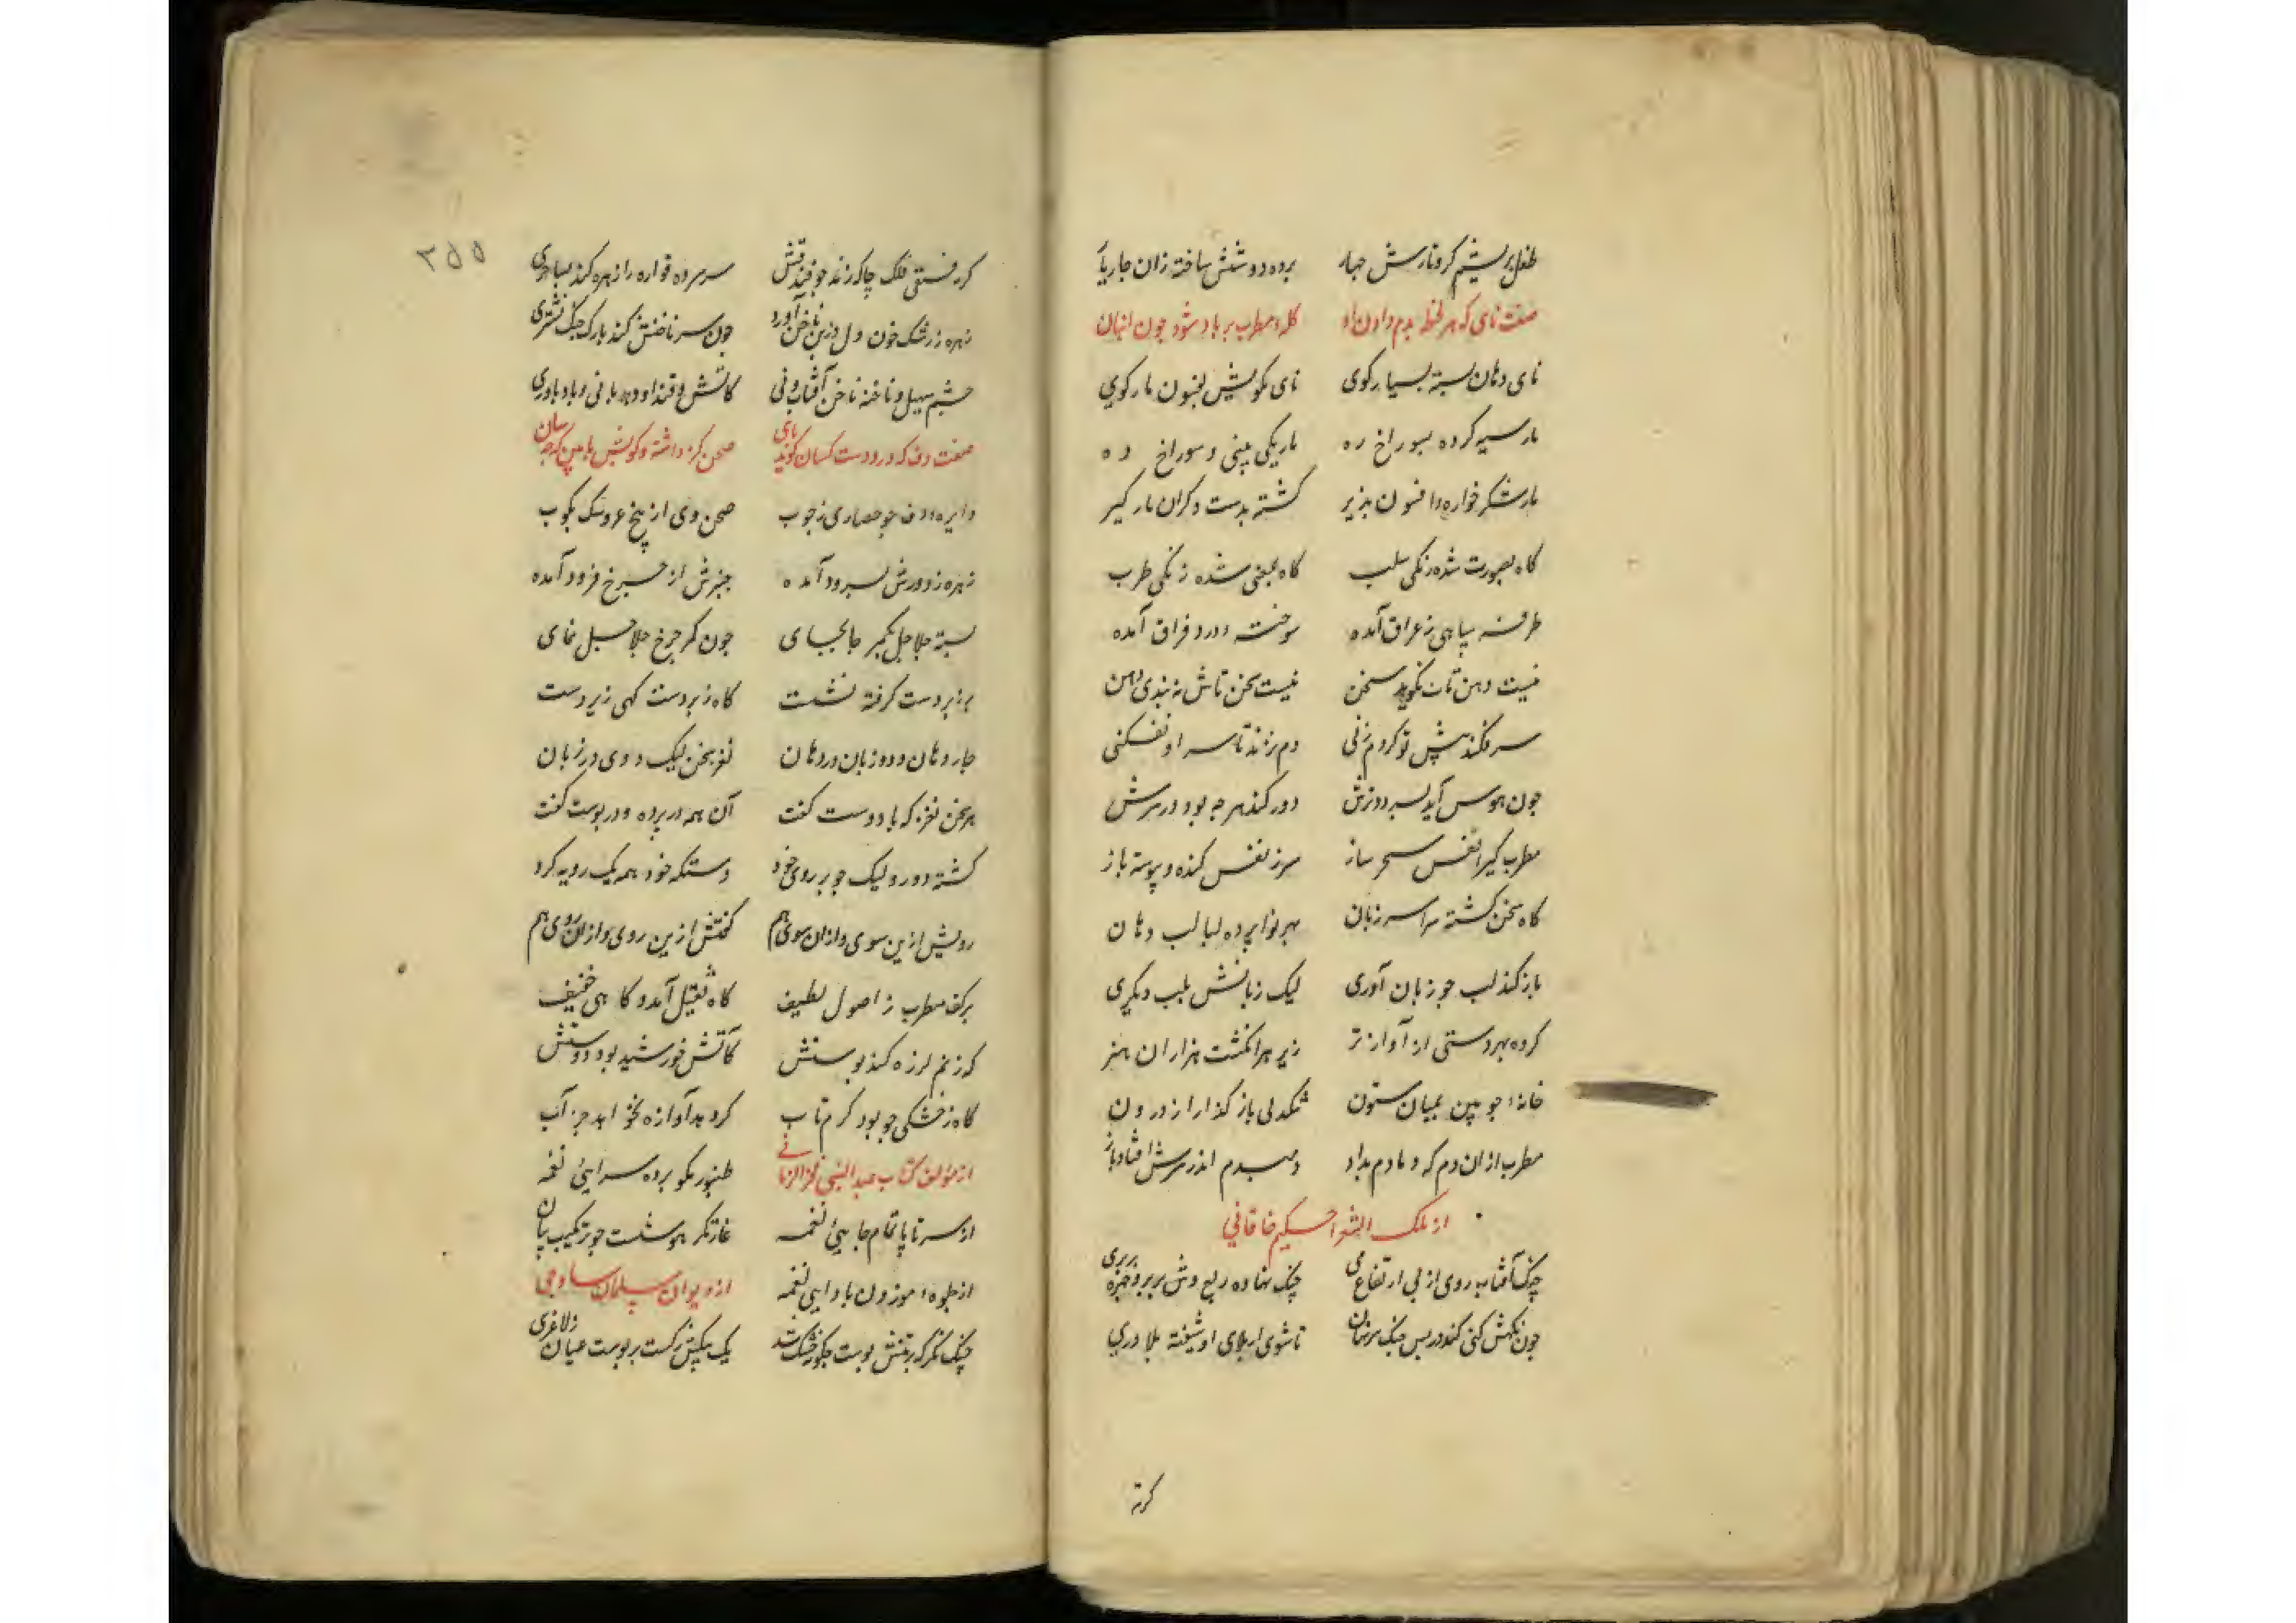 طفل بریشم کر و تارش چهار برده دو شش ساخته زان چار یا
صفت نای که هر لحظه بدم دادن او کله مطرب پر باد شود چون انبان
نای دهان بسته بسیار کوی نای مکویش بفسون مار کوی
مار سیه کرده بسوراخ ره مار یکی بینی و سوراخ ده
مار شکر خواره و افسون پذیر کشته بدست دکران مار کیر
کاه بصورت شده زنکی سلب کاه بمعنی شده زنکی طرب
طرفه سیاهی ز عراق آمده سوخته درد فراق آمده
نیست دهن تات نکوید سخن نیست سخن تاش نه بندی دهن
سر فکند پیش تو کر دم زنی دم نزند تا سر او نفکنی
چون هوس آید بسرود ترش دور کند هر چه بود در سرش
مطرب کیرا نفس سحر ساز سر ز نفس کنده و پیوسته باز
کاه سخن کشته سراسر زبان بهر نوا برده لبالب دهان
باز کند لب چو زبان آوری لیک زبانش بلب دیکری
کرده بهر دستی از آواز تر زیر هر انکشت هزاران هنر
خانه چوبین بمیان ستون تنکدلی باز کذار از درون
مطرب از ان دم که دمادم بداد دمبدم اندر سرش افتاد باز
از ملک الشعرا حکیم خاقانی
چنک آفتاب روی از پی ارتفاع می چنک نهاده ربع وش بر بر و چهره بربری
چون نکهش کنی کند در پس چنک سر نهان تا شوی از بلای او شیفته بلا دری
کرته
۳۵۵
کرته فستقی فلک چاک زند چو فندقش سر سر ده قواره را زهره کند بساحری
زهره ز رشک خون دل در بن ناخن آورد چون سر ناخنش کند با رک چنک نشتری
چشم سهیل و ناخنه ناخن آفتاب و نی کاتش و قند او دهد با نی و باد یاوری
صفت دف که در و دست کسان کوبد پای صحن کرد داشته و کوبش پا بین که چه سان
دایره دف چو حصاری ز چوب صحن وی از پنج عروسک بکوب
زهره ز دورش بسرود آمده چنبرش از چرخ فرود آمده
بسته جلاجل بکمر جا بجای چون کمر چرخ جلاجل نمای
بر زبر دست کرفته نشست کاه زبردست کهی زیردست
چار دهان و دو زبان در دهان نغز سخن لیک دوی در زبان
هر سخن نغز که با دوست کفت آن همه در پرده و در پوست کفت
کشته دو رو لیک چو بر روی خود دستکه خود همه یک رویه کرد
رویش ازین سوی و ازان سوی هم کفتش ازین روی و ازان روی هم
بر کف مطرب ز اصول لطیف کاه ثقیل آمد و کاهی خفیف
که ز نم لرزه کند پوستش کاتش خورشید بود دوستش
کاه ز خشکی چو بود کرم تاب کرد بد آوازه نخواهد جز آب
از مؤلف کتاب عبدالنبی فخر الزمانی طنبور نکو پرده سرایی نغمه
از سر تا پا تمام جایی نغمه غارتکر هوشست چو ترکیب بتان
از جلوه موزون باد ایی نغمه از دیوان سلمان ساوجی
چنک نکر که بر تنش پوست چکونه خشک شد یک بیکش رکست بر پوست عیان ز لاغری